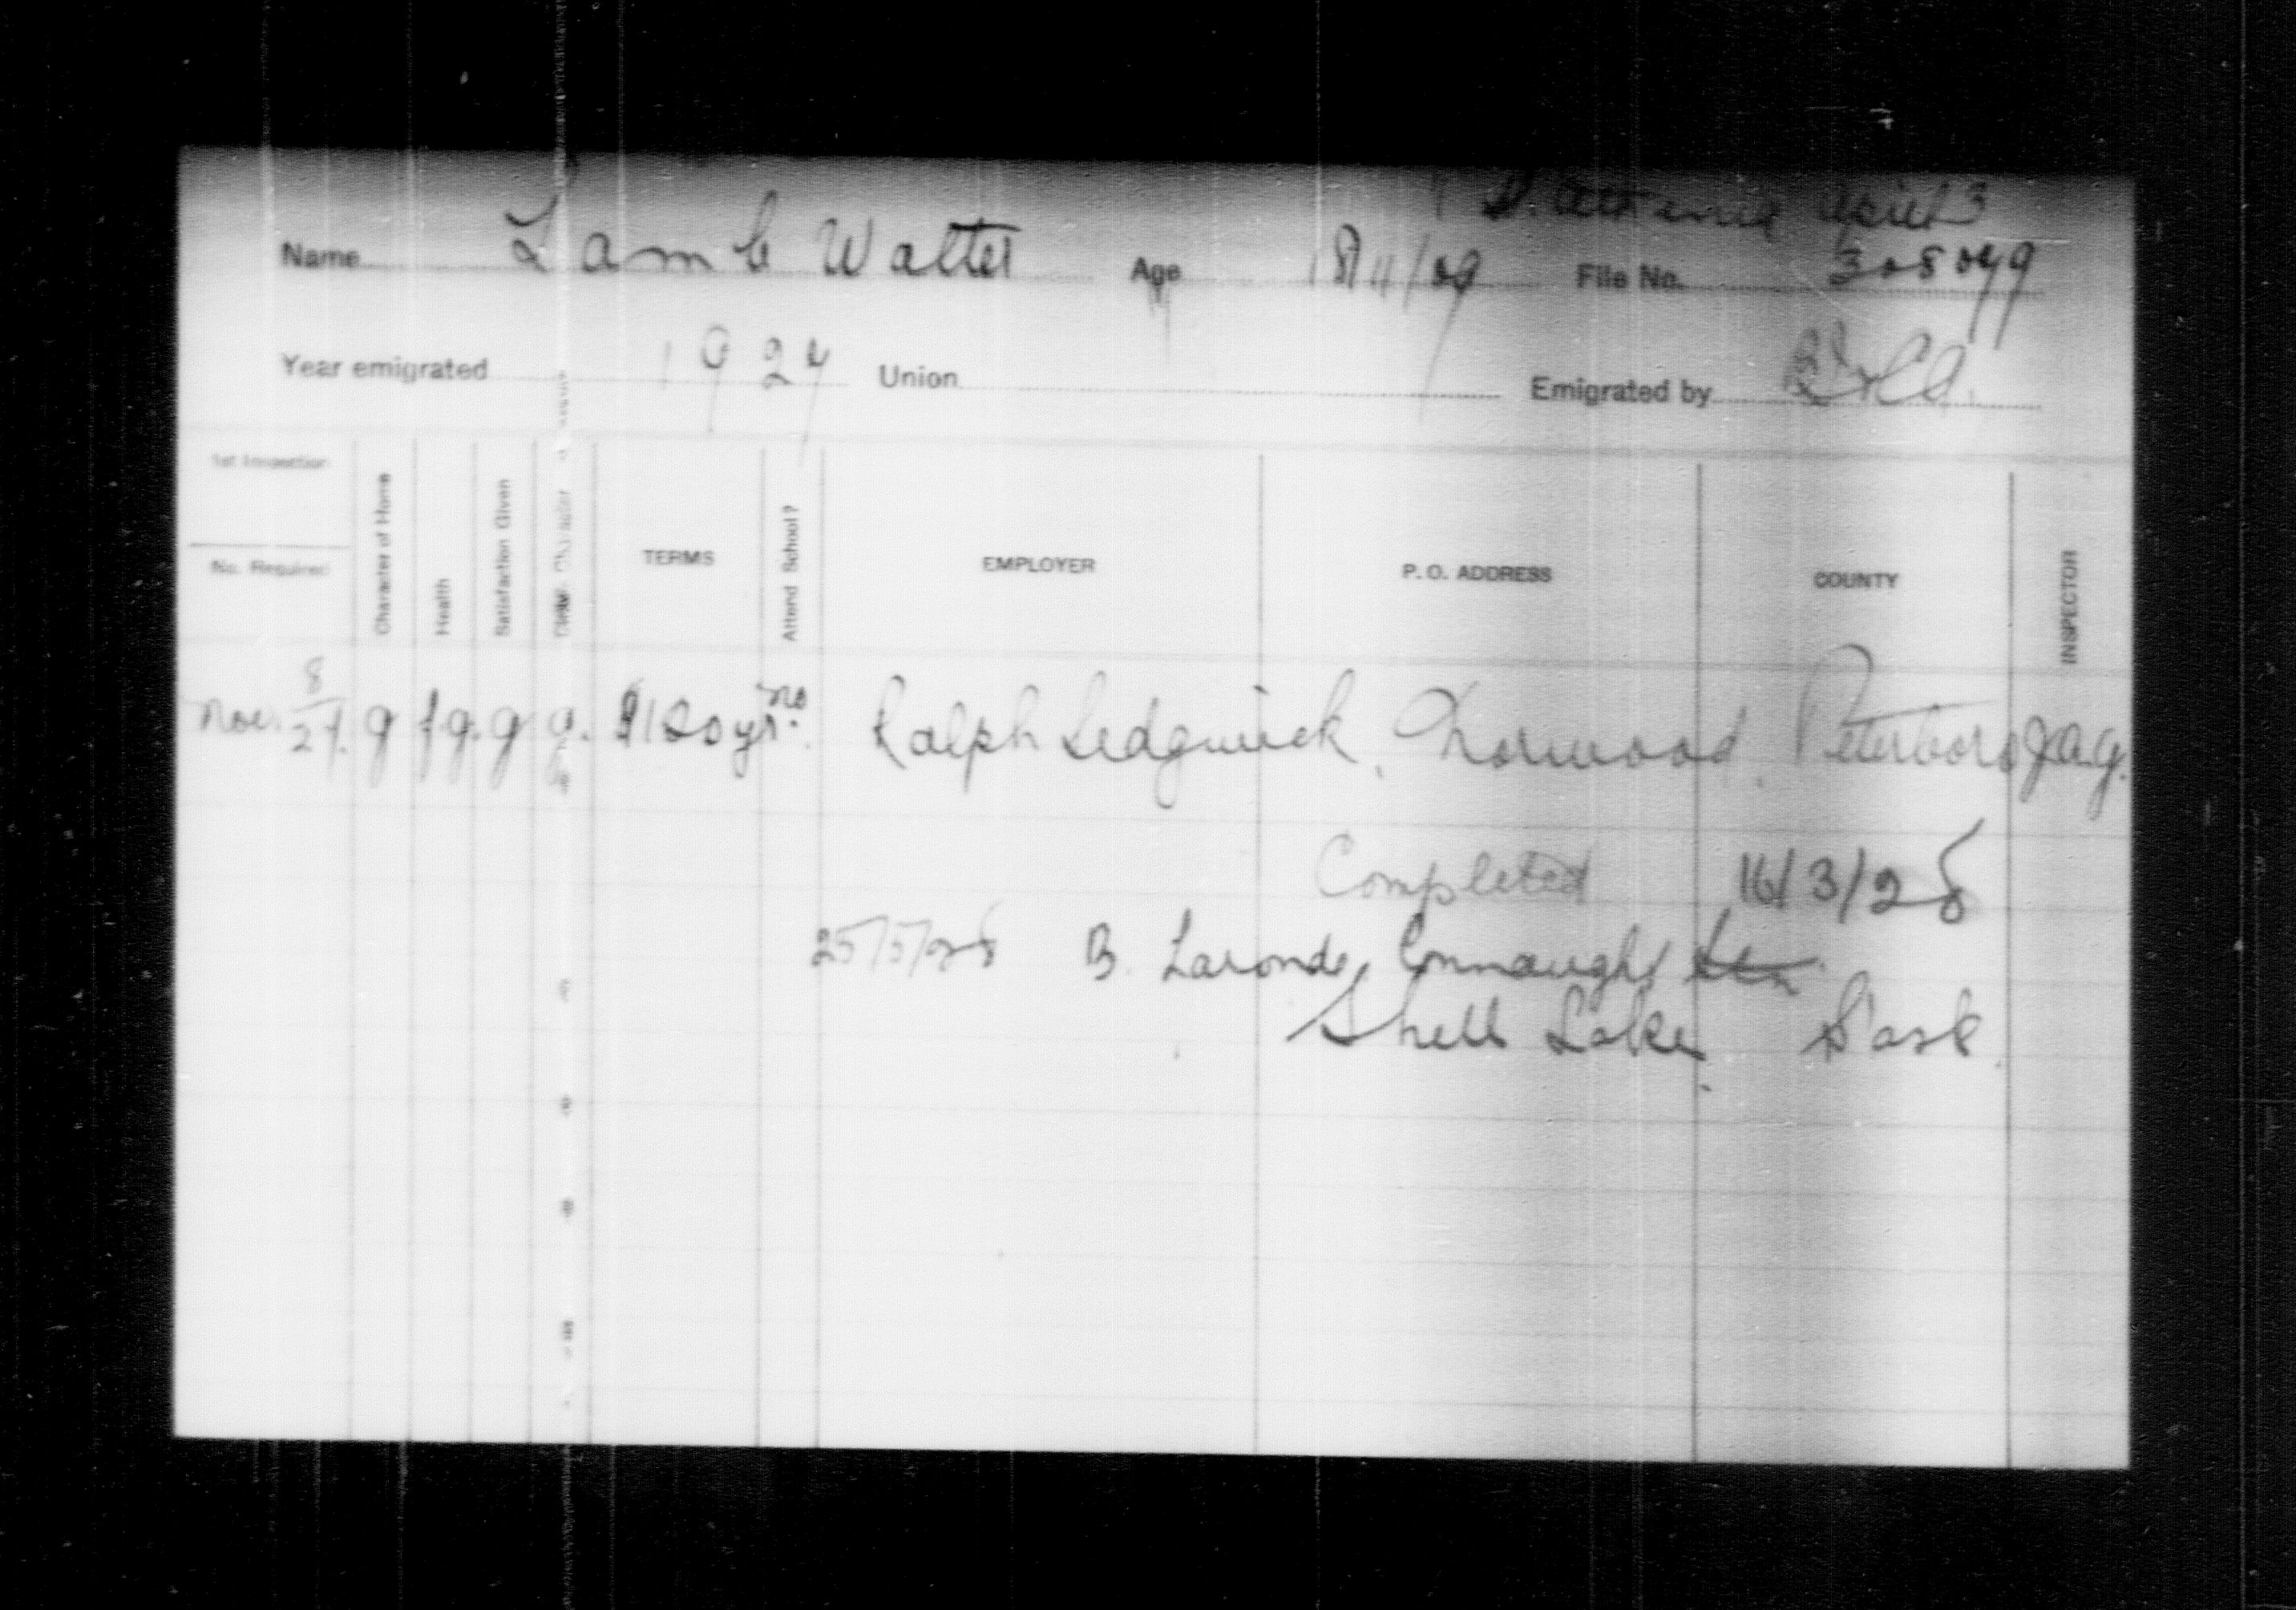 April 3
Name Lamb Walter Age 18/11/09 File No. 308079
Year emigrated 1927 Union Emigrated by
1st Inspection
No. Required
Character of Home
Health
Satisfaction Given
Character
TERMS
Attend School?
EMPLOYER
P.O. ADDRESS
COUNTY
INSPECTOR
Nov. 8/27. g fg. g g. $120 yr. no Ralph Sedgwick, Norwood, Peterboro J.A.G.
Completed 16/3/28
25/5/28 B. Laronde, Connaught Stn
Shell Lake Sask.